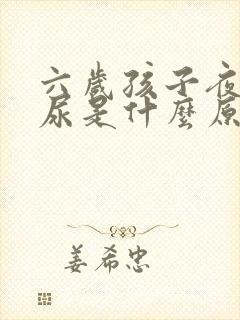 六歲孩子夜
尿是什麼原
姜希忠